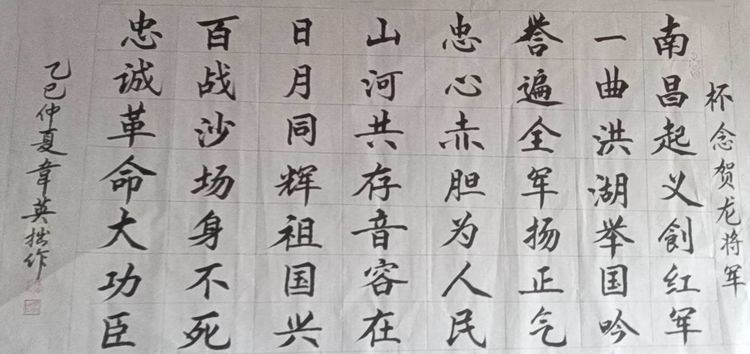 怀念贺龙将军
南昌起义创红军
一曲洪湖举国吟
誉遍全军扬正气
忠心赤胆为人民
山河共存音容在
日月同辉祖国兴
百战沙场身不死
忠诚革命大功臣
乙巳仲夏韦英拙作